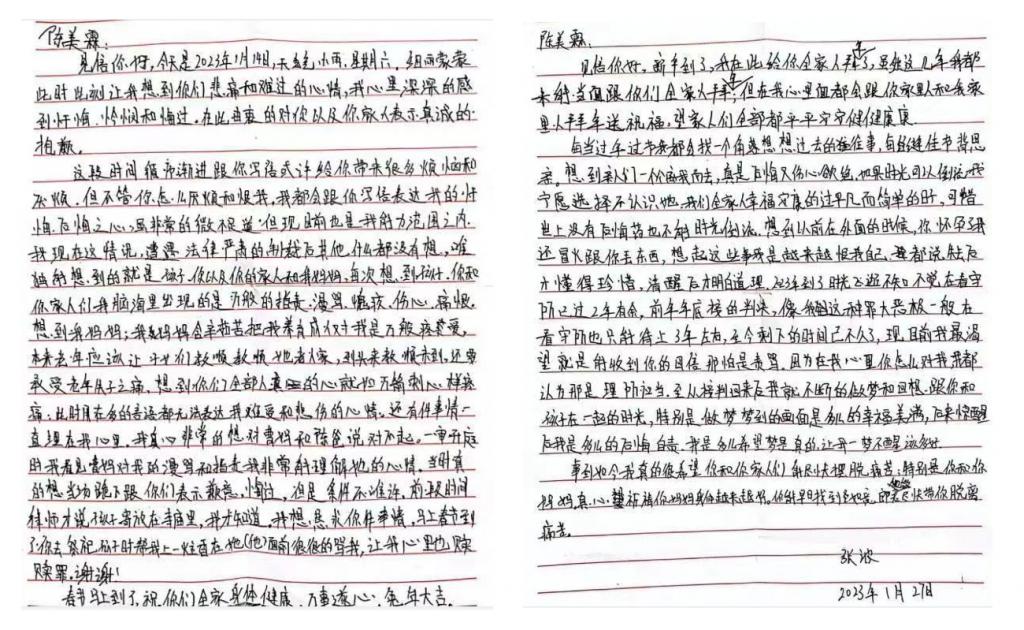 陈美霖:
见信你好,今天是2023年1月14日,天气小雨,星期六,细雨蒙蒙
此时此刻让我想到你们悲痛和难过的心情,我心里深深的感
到忏悔、悔过,在此由衷的对你以及你家人表示真诚的
抱歉。
这段时间循序渐进跟你写信或许给你带来很多烦恼和
厌烦,但不管你怎么厌烦和恨我,我都会跟你写信表达我的忏
悔后悔之心,虽非常的微不足道但现目前也是我能力范围之内,
我现在这情况,遭遇法律严肃的制裁后其他什么都没有想,唯
独能想到的就是孩子、你以及你的家人和我妈妈,每次想到孩子、你和
你家人们我脑海里出现的是万般的指责、漫骂、伤心、痛恨,
想到我妈妈,我妈妈含辛茹苦把我养育成人对我是万般疼爱,
本来去年应该让子女们孝顺孝顺她老人家,到头来孝顺未到,还要
承受老年失子之痛,想到你们全部人真的心就如万箭刺心一样疼
痛,此时用在多的言语都无法表达我难受和悲伤的心情。还有件事情一
直埋在我心里,我真心非常的想对曹妈和陈爸说对不起。一审开庭
时我看见曹妈对我的漫骂和指责我非常能理解她的心情,当时真
的想当场跪下跟你们表示歉意、悔过,但是条件不准许,前段时间
律师才说孩子寄放在寺庙里,我才知道,我想恳求你件事情,马上春节到
了你去祭祀孩子时帮我上一炷香在她(他)面前狠狠的骂我,让我心里也赎
赎罪。谢谢!
春节马上到了,祝你们全家身体健康、万事遂心、兔年大吉。
陈美霖:
见信你好。新年到了,我在此给你全家人拜年了,虽然这几年我都
未能当面跟你们全家人拜年,但在我心里面都会跟你家里人和我家
里人拜年送祝福,望家人们全部都平平安安健健康康
每当过年过节我都会找一个角落想想过去的往事,每逢佳节背思
亲,想到亲人们一个个离我而去,真是后悔又伤心欲绝,如果时光可以倒流,我
宁愿选择不认识她,我们全家人幸福安康的过平凡而简单的日子,可惜
世上没有后悔药也不能时光倒流,想到以前在外面的时候,你怀孕了我
还冒火跟你丢东西,想起这些事我是越来越恨我自己,书都说失去后
才懂得珍惜,清醒后才明白道理,2023年到了时光飞逝,不知不觉在看守
所已过2年有余,前年年底接的判决,像我这种罪大恶极一般在
看守所也只能待上3年左右,至今剩下的时间已不久了,现目前我最渴
望就是能收到你的回信那怕是责骂,因为在我心里你怎么对我我都
认为那是理所应当,至从接判回来后我就不断的做梦和回想跟你和
孩子在一起的时光,特别是做梦梦到的画面是多么的幸福美满,后来惊醒
后我是多么的后悔自责,我是多么希望梦是真的,让我一梦不醒该多好。
事到如今我真的很希望你和你家人们能尽快摆脱病苦,特别是你和你
妈妈,真心祝福你妈妈身体越来越好,你能早日找到如意尽快带你脱离
痛苦。
张波
2023年1月27日